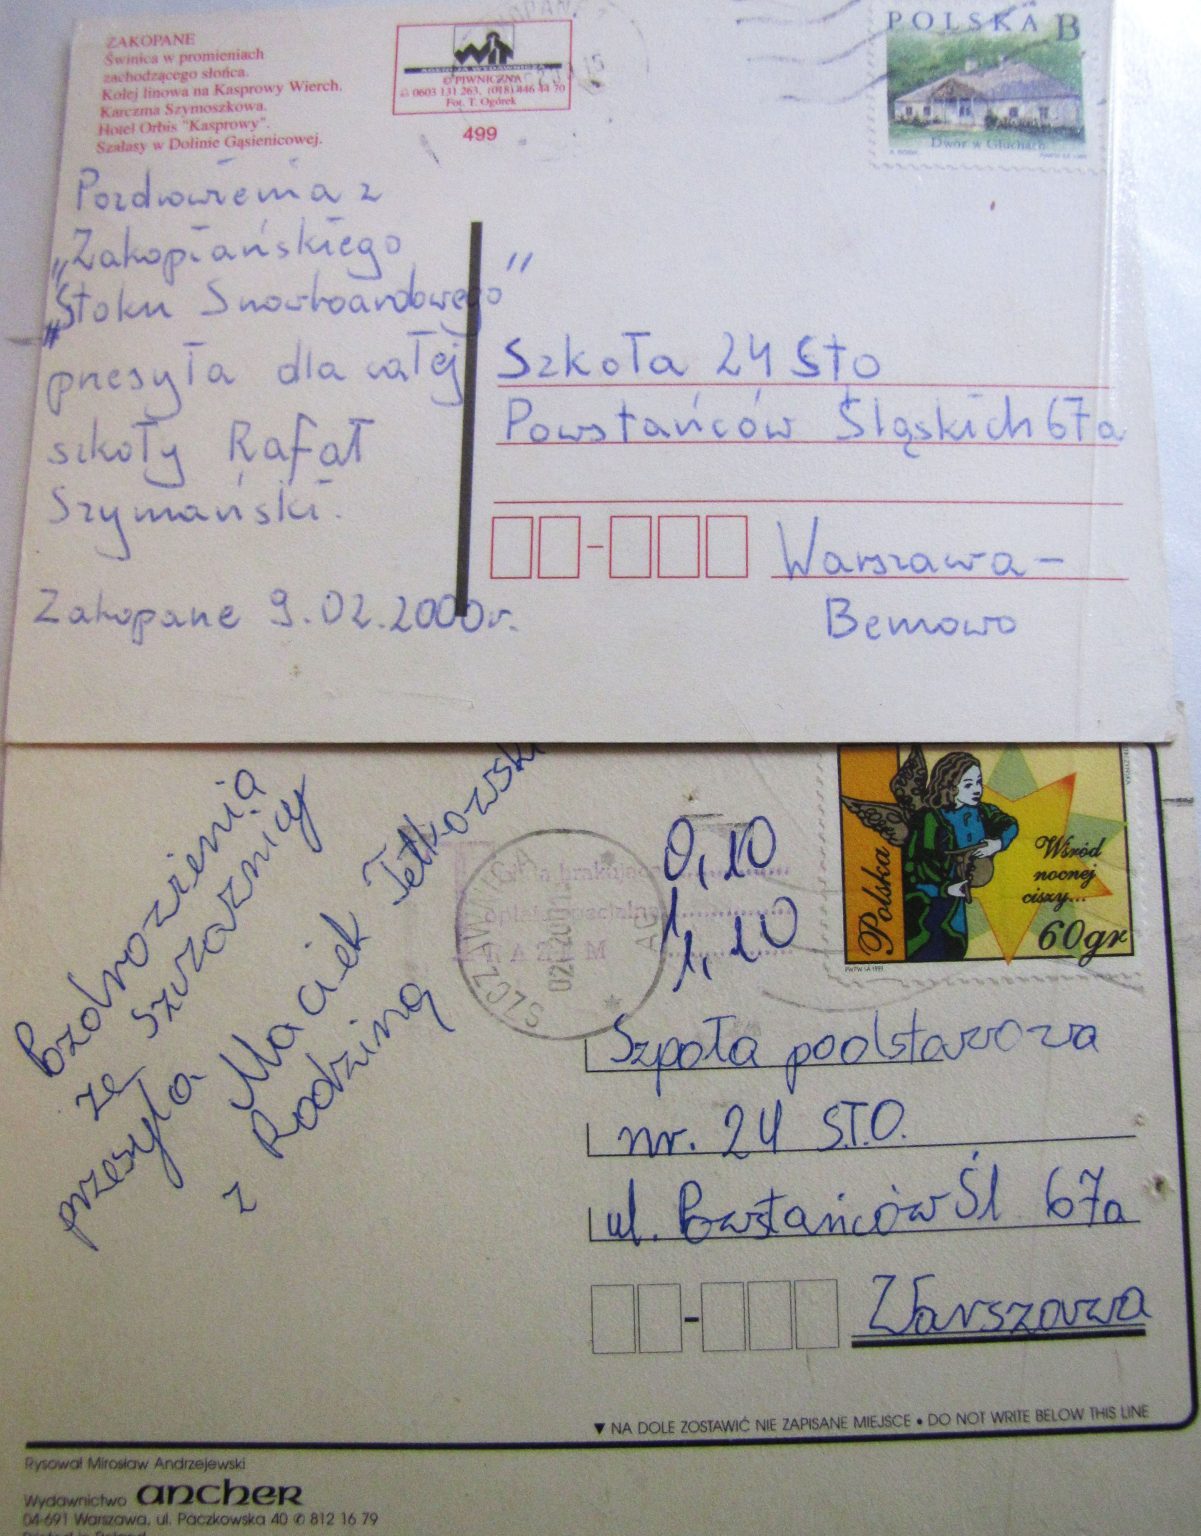 ZAKOPANE
Świnica w promieniach
zachodzącego słońca.
Kolej linowa na Kasprowy Wierch.
Karczma Szymoszkowa.
Hotel Orbis "Kasprowy".
Szałasy w Dolinie Gąsienicowej.
WiT
AGENCJA WYDAWNICZA
© PIWNICZNA
0603 131 263, (018) 446 44 70
Fot. T. Ogórek
499
POLSKA B
Dwór w Głuchach
Pozdrowienia z
„Zakopiańskiego
„Stoku Snowboardowego”
przesyła dla całej
szkoły Rafał
Szymański.
Zakopane 9.02.2000r.
Szkoła 24 Sto
Powstańców Śląskich 67a
Warszawa-
Bemowo
Pozdrowienia
ze Szczawnicy
przesyła Maciek
z Rodziną
0,10
1,10
SZCZAWNICA
Polska
Wśród
nocnej
ciszy...
60gr
Szpoła podstawowa
nr. 24 S.T.O.
ul. Powstańców Śl 67a
Warszawa
▼ NA DOLE ZOSTAWIĆ NIE ZAPISANE MIEJSCE • DO NOT WRITE BELOW THIS LINE
Rysował Mirosław Andrzejewski
Wydawnictwo ancher
04-691 Warszawa, ul. Paczkowska 40 ✆ 812 16 79
Printed in Poland